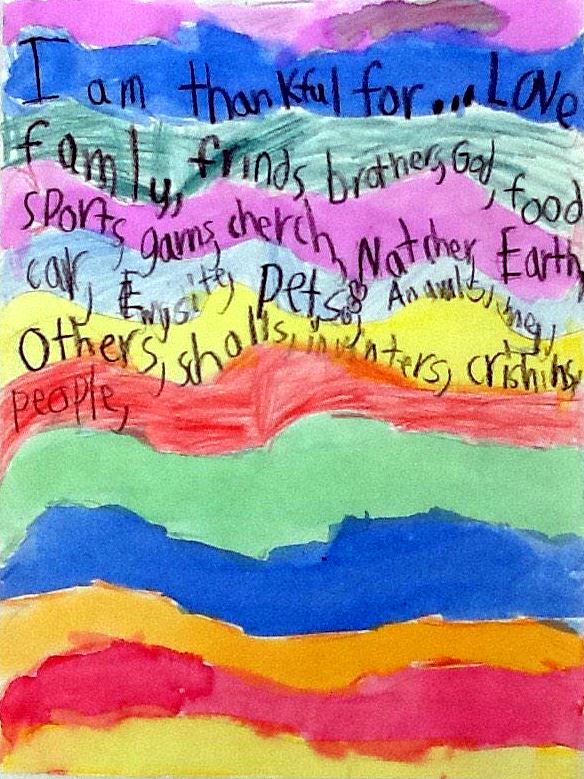 I am thankful for... Love
famly, frinds, brothers, God, food
sports, gams, cherch, Natcher, Earth
car, pets,
Others, sholls, crishins,
people,